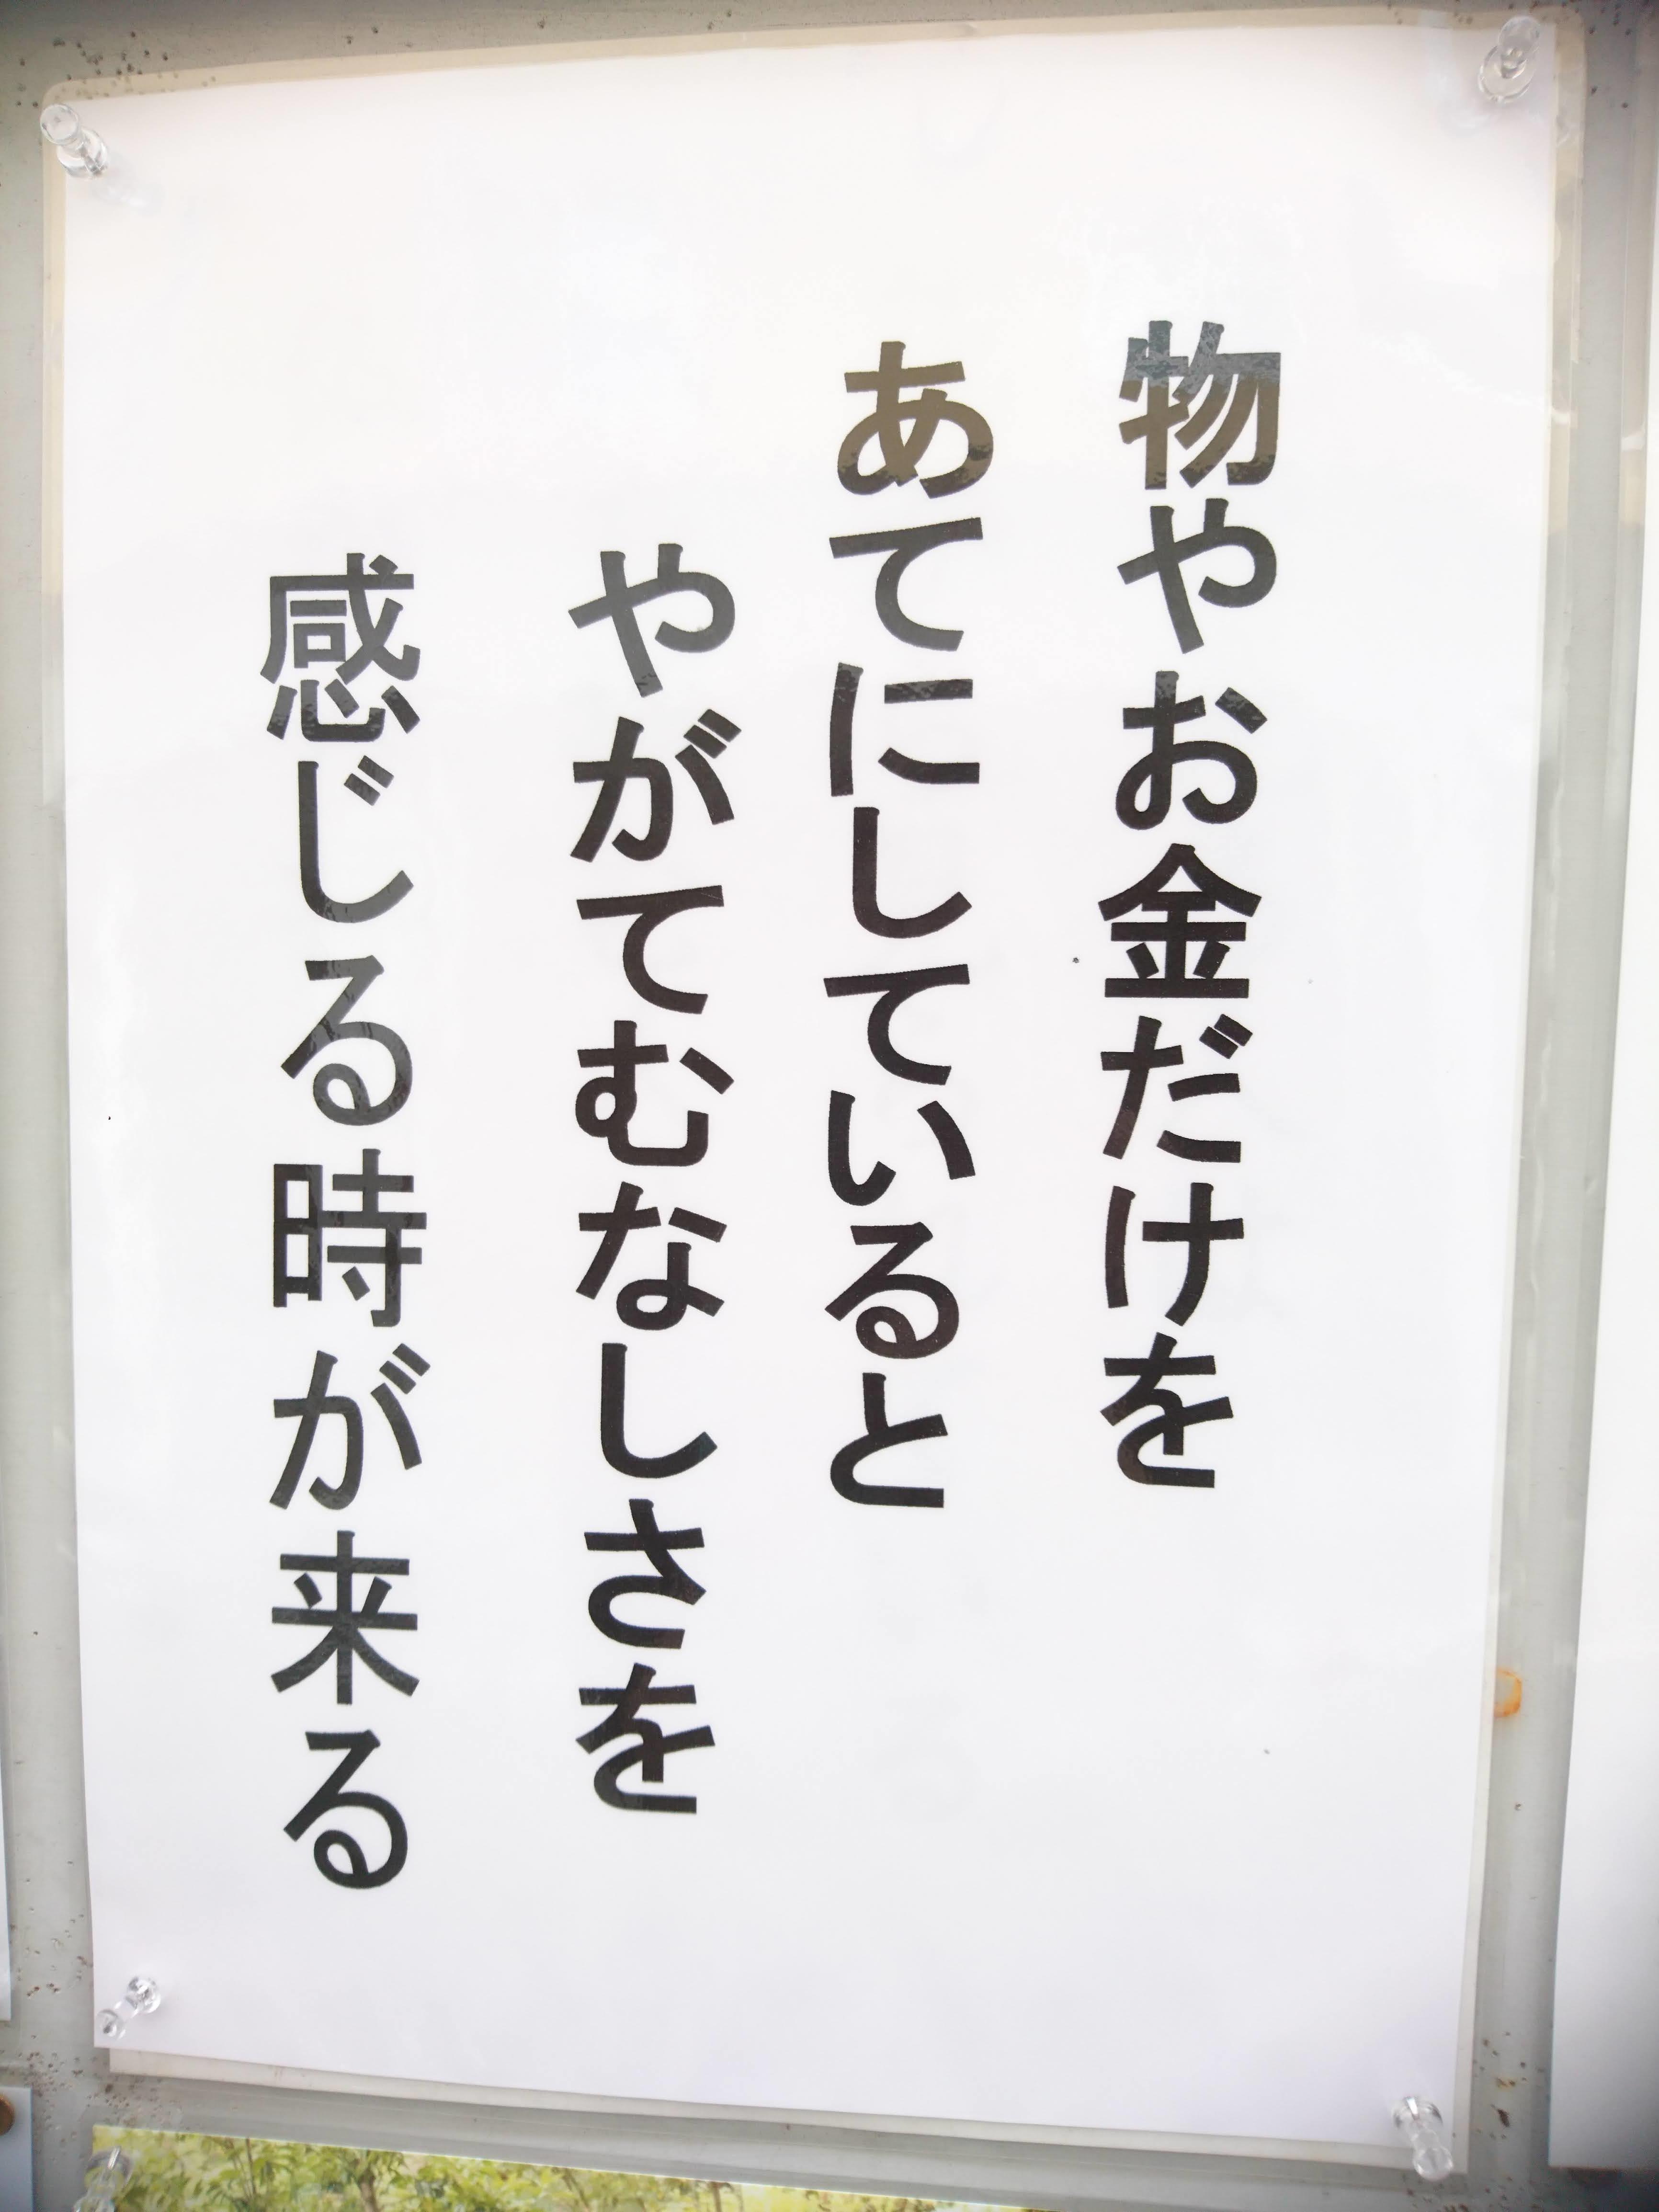 物やお金だけを
あてにしていると
やがてむなしさを
感じる時が来る